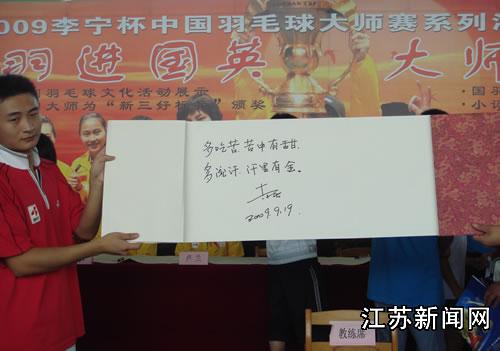 009李宁杯中国羽毛球大师赛系列
羽进国英 大师
羽毛球文化活动展示
国羽
大师为“新三好 颁奖
小记
多吃苦.苦中有甜.
多流汗.汗里有金。
2009.9.19.
教练席
江苏新闻网